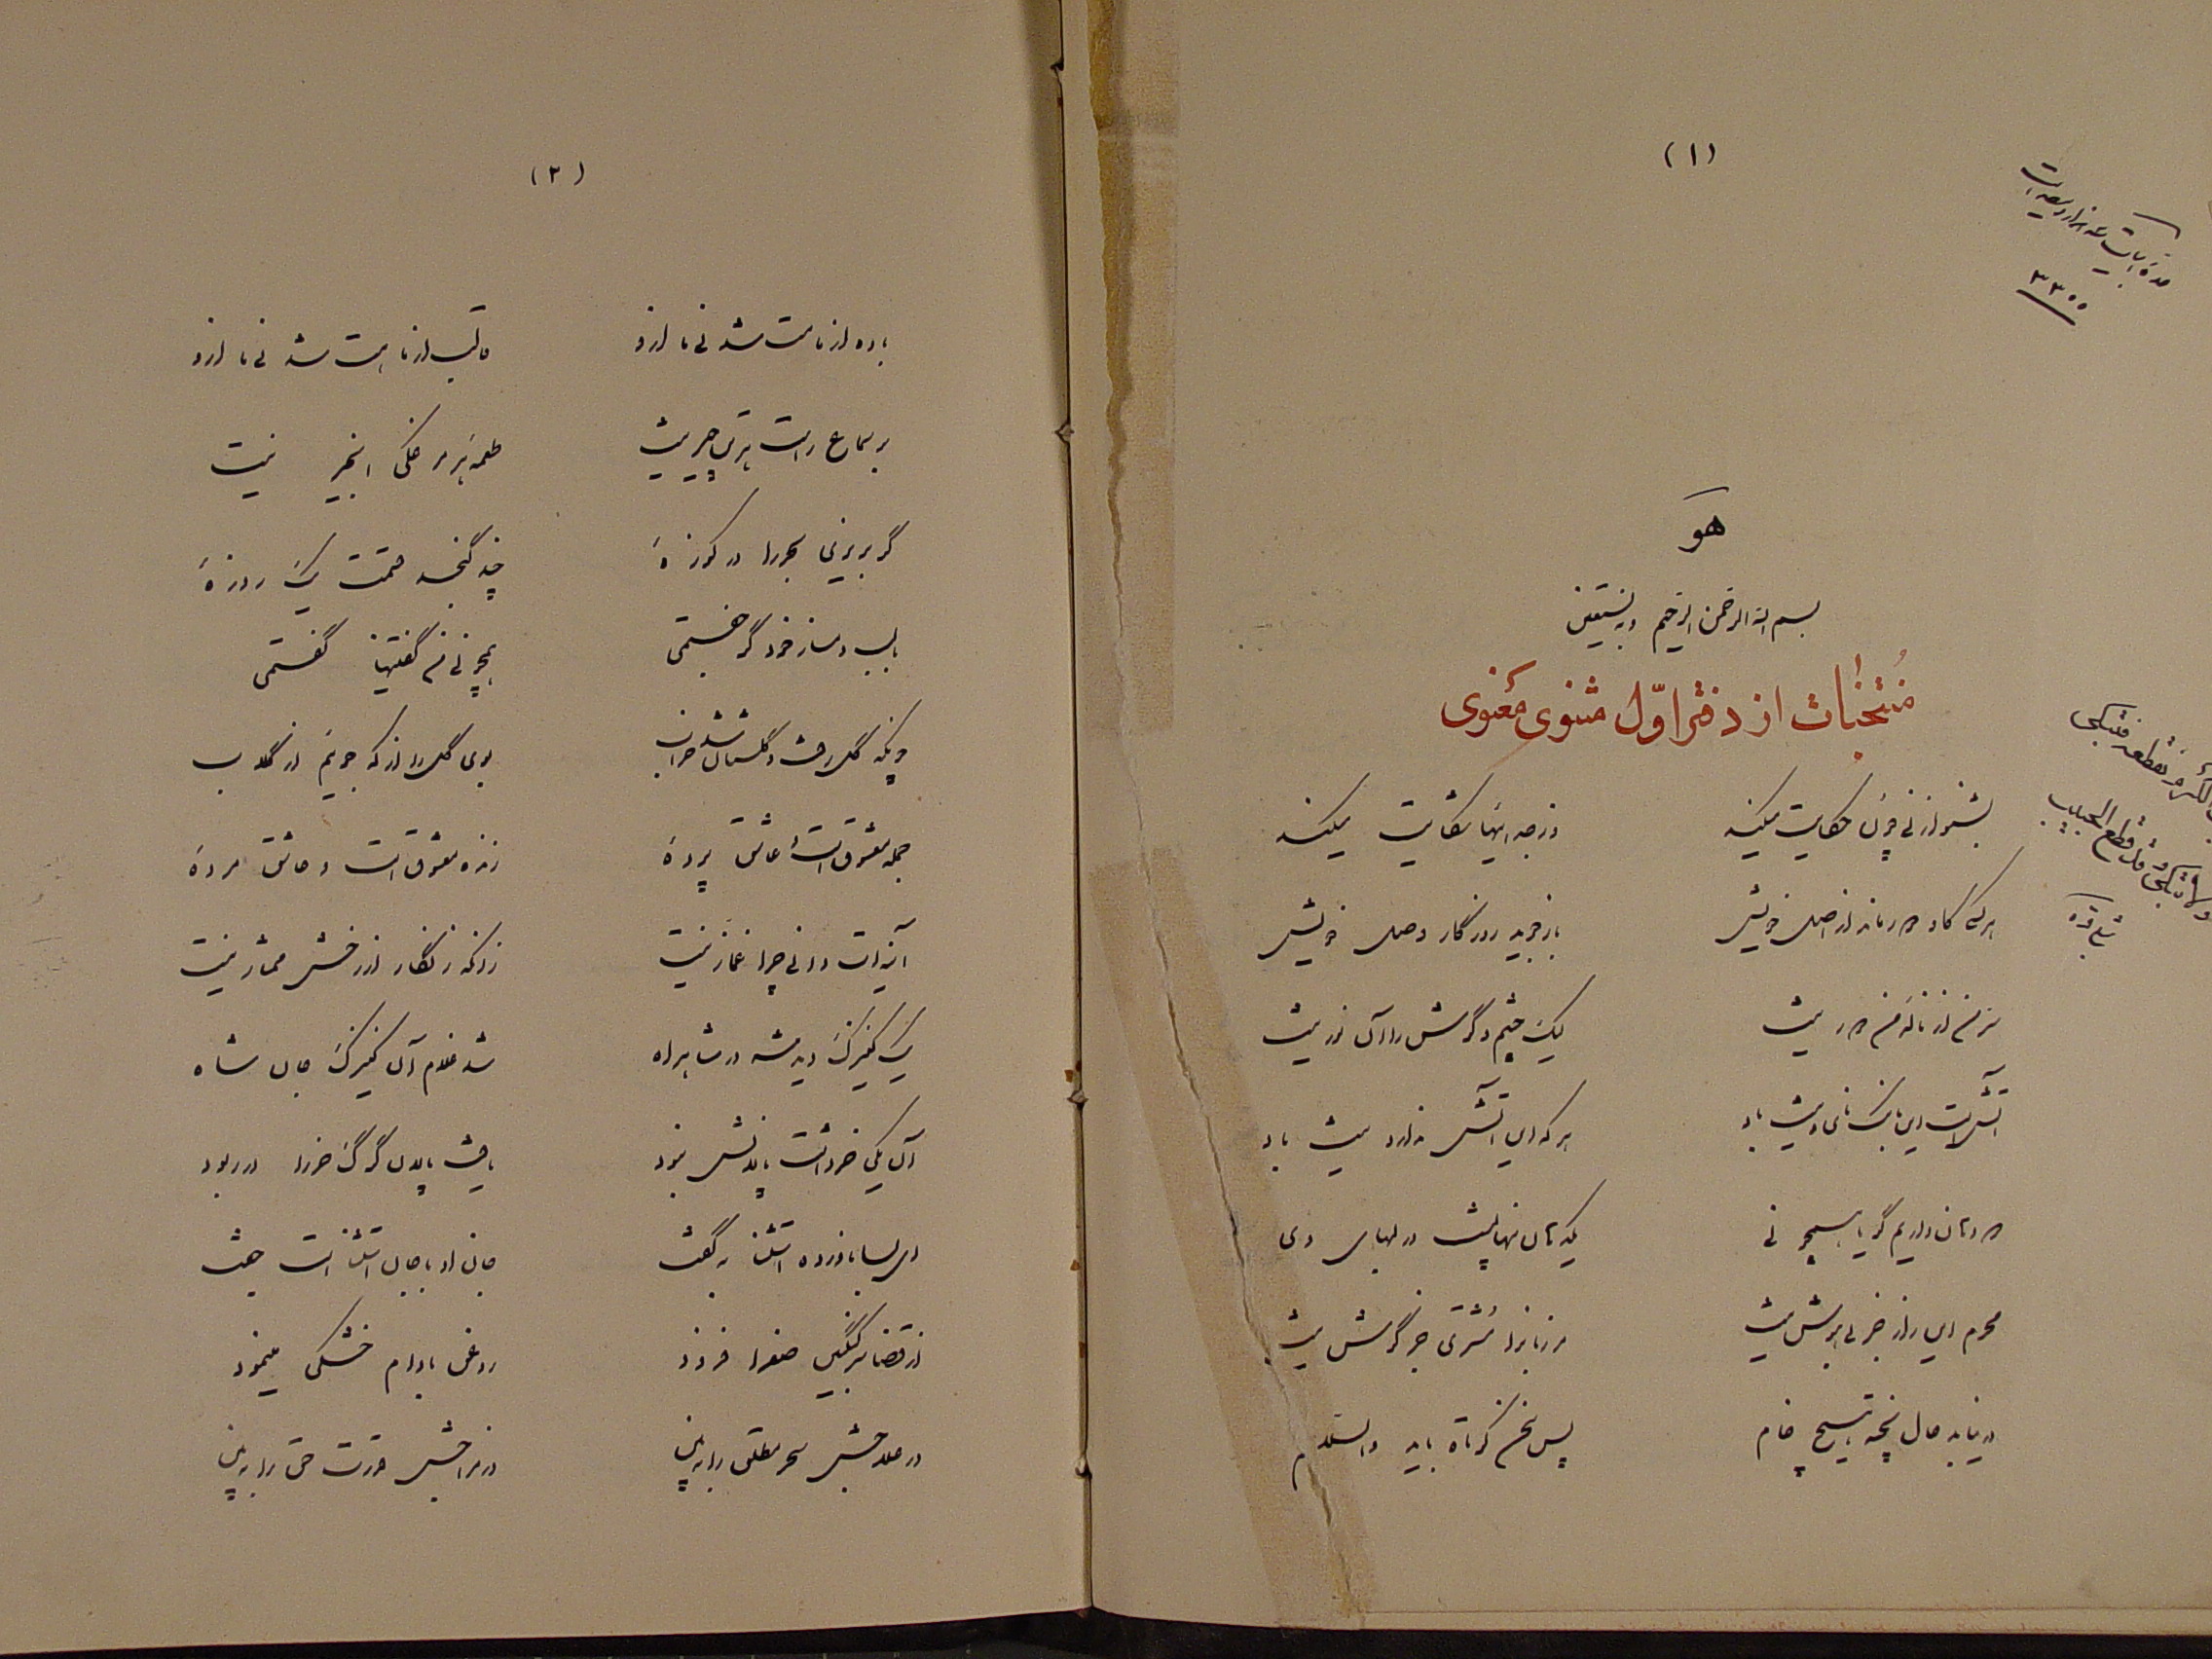 (۱)
۳۳۰۰
هو
بسم الله الرحمن الرحیم و به نستعین
مُنتخبات از دفتر اوّل مثنوی معنوی
بشنو از نی چون حکایت میکند وز جدائیها شکایت میکند
هر کسی کاو دور ماند از اصل خویش باز جوید روزگار وصل خویش
سر من از ناله من دور نیست لیک چشم و گوش را آن نور نیست
آتش است این بانک نای و نیست باد هر که این آتش ندارد نیست باد
دو دهان داریم گویا همچو نی یک دهان پنهانست در لبهای وی
محرم این راز جز بی‌هوش نیست مر زبانرا مشتری جز گوش نیست
در نیابد حال پخته هیچ خام پس سخن کوتاه باید والسلام
قطع الحبیب
(۲)
باده از ما مست شد نی ما ازو قالب از ما هست شد نی ما ازو
بر سماع راست هر تن چیر نیست طعمه هر مرغکی انجیر نیست
گر بریزی بحر را در کوزهٔ چند گنجد قسمت یک روزهٔ
با لب دمساز خود گر جفتمی همچو نی من گفتنیها گفتمی
چونکه گل رفت و گلستان شد خراب بوی گل را از که جوئیم از گلاب
جمله معشوق است و عاشق پردهٔ زنده معشوق است و عاشق مردهٔ
آینه‌ات دانی چرا غماز نیست زانکه زنگار از رخش ممتاز نیست
یک کنیزک دید شه در شاهراه شد غلام آن کنیزک جان شاه
آن یکی خر داشت پالانش نبود یافت پالان گرگ خر را در ربود
ای بسا ناورده استثنا به گفت جان او با جان استثنا است جفت
از قضا سرکنگبین صفرا فزود روغن بادام خشکی مینمود
در علاجش سحر مطلق را ببین در مزاجش قدرت حق را ببین